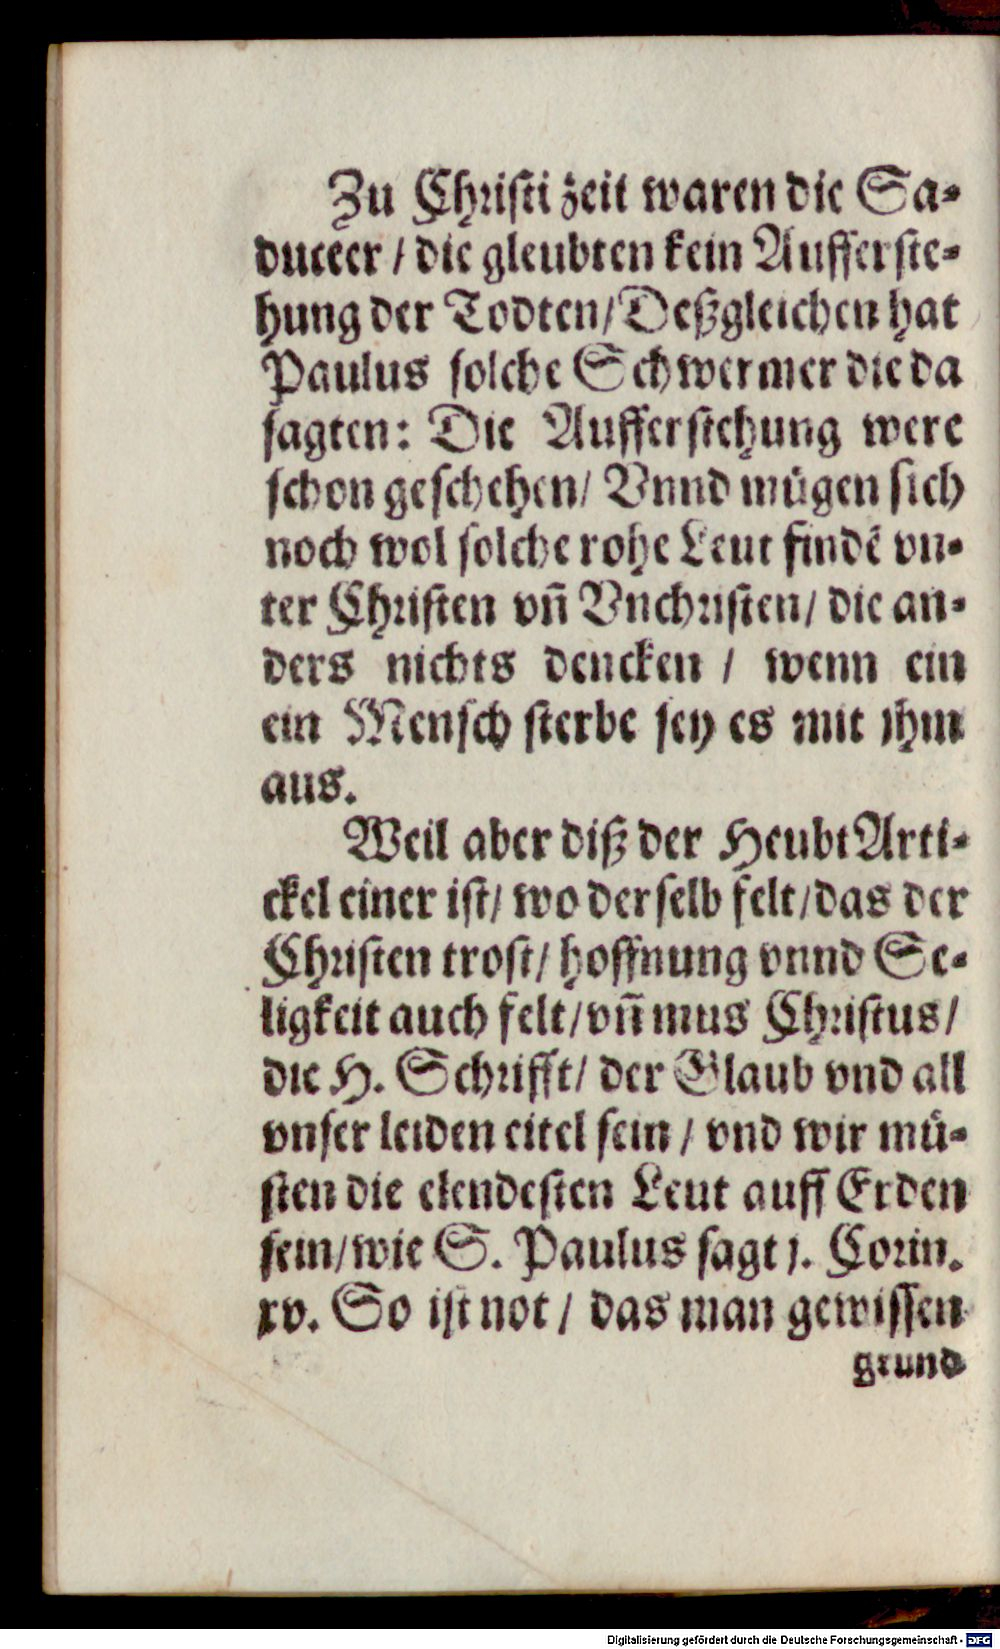 Zu Chriſti zeit waren die Sa-
duceer / die gleubten kein Aufferſte-
hung der Todten/ Deßgleichen hat
Paulus ſolche Schwermer die da
ſagten: Die Aufferſtehung were
ſchon geſchehen/ Vnnd mügen ſich
noch wol ſolche rohe Leut findē vn-
ter Chriſten vñ Vnchriſten/ die an-
ders nichts dencken / wenn ein
ein Menſch ſterbe ſey es mit jhm
aus.
Weil aber diß der HeubtArti-
ckel einer iſt/ wo derſelb felt/ das der
Chriſten troſt/ hoffnung vnnd Se-
ligkeit auch felt/ vñ mus Chriſtus/
die H. Schrifft/ der Glaub vnd all
vnſer leiden eitel ſein / vnd wir mü-
ſten die elendeſten Leut auff Erden
ſein/ wie S. Paulus ſagt j. Corin.
xv. So iſt not / das man gewiſſen
grund
Digitalisierung gefördert durch die Deutsche Forschungsgemeinschaft - DFG